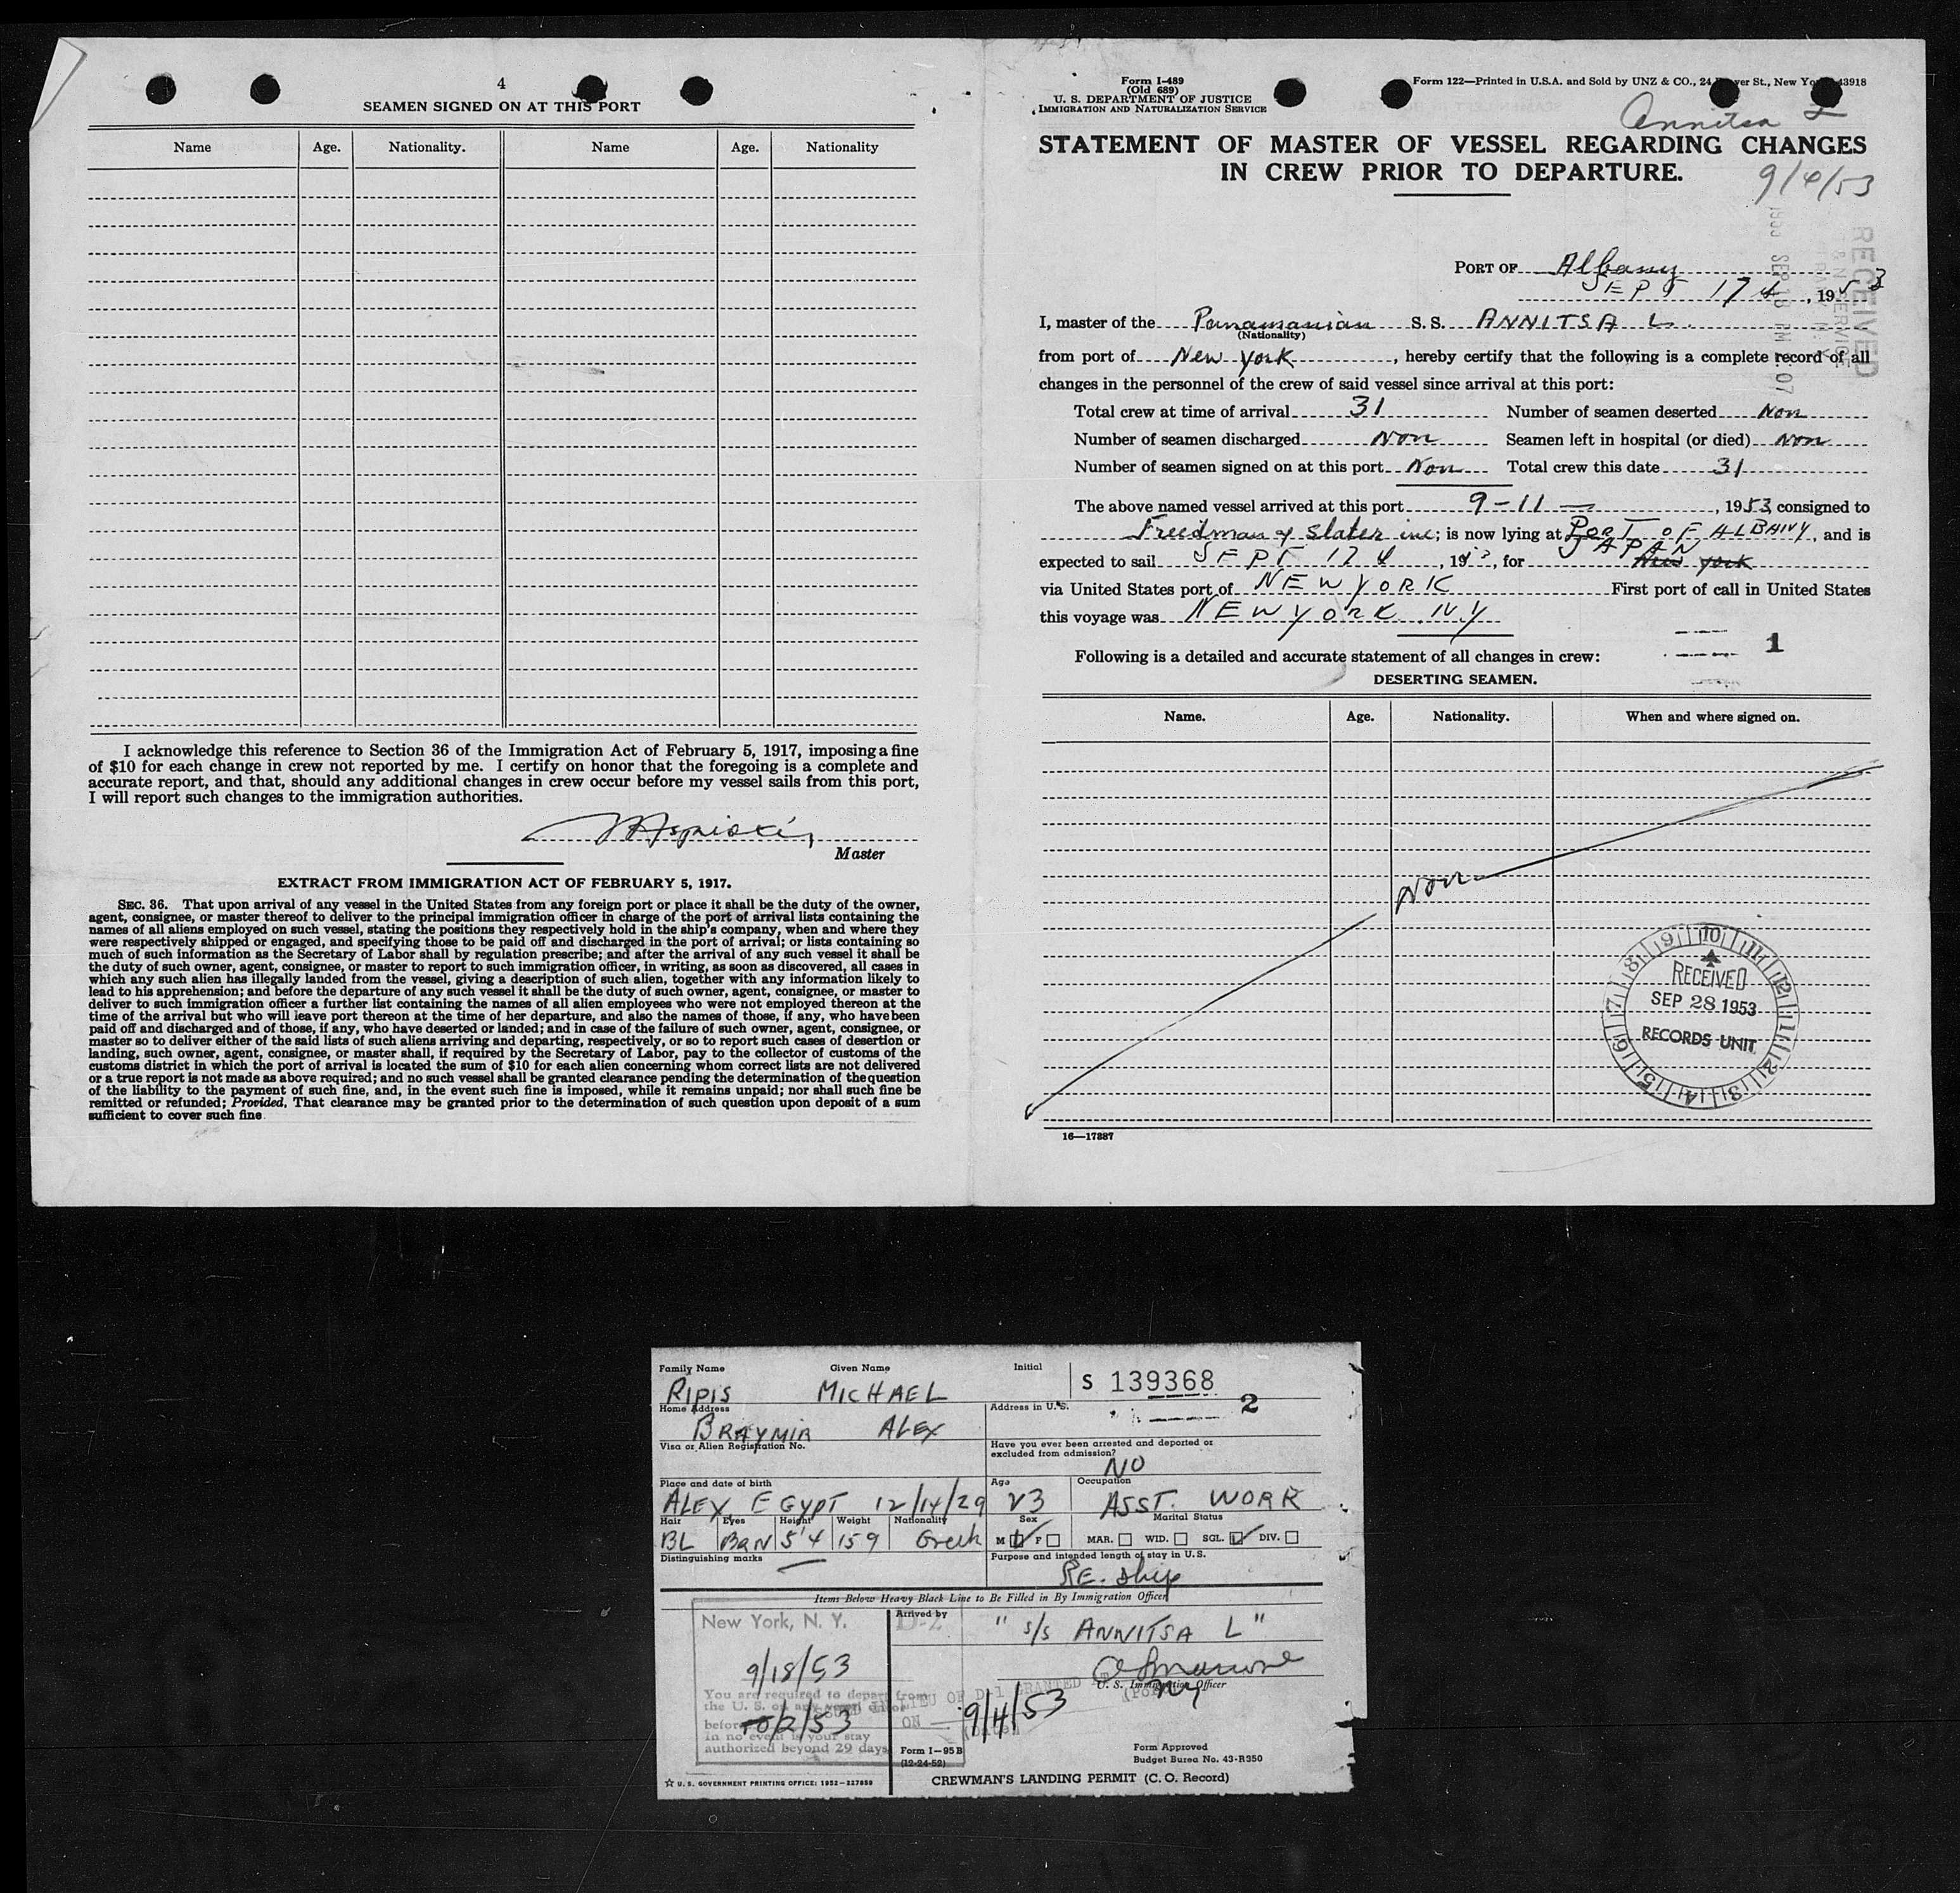 4
SEAMEN SIGNED ON AT THIS PORT
Name Age. Nationality. Name Age. Nationality
I acknowledge this reference to Section 36 of the Immigration Act of February 5, 1917, imposing a fine
of $10 for each change in crew not reported by me. I certify on honor that the foregoing is a complete and
accurate report, and that, should any additional changes in crew occur before my vessel sails from this port,
I will report such changes to the immigration authorities.
Master
EXTRACT FROM IMMIGRATION ACT OF FEBRUARY 5, 1917.
SEC. 36. That upon arrival of any vessel in the United States from any foreign port or place it shall be the duty of the owner,
agent, consignee, or master thereof to deliver to the principal immigration officer in charge of the port of arrival lists containing the
names of all aliens employed on such vessel, stating the positions they respectively hold in the ship's company, when and where they
were respectively shipped or engaged, and specifying those to be paid off and discharged in the port of arrival; or lists containing so
much of such information as the Secretary of Labor shall by regulation prescribe; and after the arrival of any such vessel it shall be
the duty of such owner, agent, consignee, or master to report to such immigration officer, in writing, as soon as discovered, all cases in
which any such alien has illegally landed from the vessel, giving a description of such alien, together with any information likely to
lead to his apprehension; and before the departure of any such vessel it shall be the duty of such owner, agent, consignee, or master to
deliver to such immigration officer a further list containing the names of all alien employees who were not employed thereon at the
time of the arrival but who will leave port thereon at the time of her departure, and also the names of those, if any, who have been
paid off and discharged and of those, if any, who have deserted or landed; and in case of the failure of such owner, agent, consignee, or
master so to deliver either of the said lists of such aliens arriving and departing, respectively, or so to report such cases of desertion or
landing, such owner, agent, consignee, or master shall, if required by the Secretary of Labor, pay to the collector of customs of the
customs district in which the port of arrival is located the sum of $10 for each alien concerning whom correct lists are not delivered
or a true report is not made as above required; and no such vessel shall be granted clearance pending the determination of the question
of the liability to the payment of such fine, and, in the event such fine is imposed, while it remains unpaid; nor shall such fine be
remitted or refunded; Provided, That clearance may be granted prior to the determination of such question upon deposit of a sum
sufficient to cover such fine.
Form I-489
(Old 689)
U. S. DEPARTMENT OF JUSTICE
IMMIGRATION AND NATURALIZATION SERVICE
Form 122—Printed in U.S.A. and Sold by UNZ & CO., 24 St., New 43918
Annitsa L
STATEMENT OF MASTER OF VESSEL REGARDING CHANGES
IN CREW PRIOR TO DEPARTURE.
9/4/53
RECEIVED
SEP 18 PM 1:07
PORT OF Albany
SEPT 17 , 1953
I, master of the Panamanian S. S. ANNITSA L.
(Nationality)
from port of New York, hereby certify that the following is a complete record of all
changes in the personnel of the crew of said vessel since arrival at this port:
Total crew at time of arrival 31 Number of seamen deserted Non
Number of seamen discharged Non Seamen left in hospital (or died) Non
Number of seamen signed on at this port Non Total crew this date 31
The above named vessel arrived at this port 9-11 , 1953 consigned to
Freedman & Slater inc; is now lying at PORT OF ALBANY, and is
expected to sail SEPT 17 , 1953, for JAPAN New York
via United States port of NEW YORK First port of call in United States
this voyage was NEW YORK NY
1
Following is a detailed and accurate statement of all changes in crew:
DESERTING SEAMEN.
Name. Age. Nationality. When and where signed on.
Non
9 10 11 12 1 2 3 4 5 6 7 8
RECEIVED
SEP 28 1953
RECORDS UNIT
16—17887
Family Name Given Name Initial
RIPIS MICHAEL S 139368
Home Address Address in U. S. 2
BRAYMIR ALEX
Visa or Alien Registration No. Have you ever been arrested and deported or
excluded from admission?
NO
Place and date of birth Age Occupation
ALEX, EGYPT 12/14/29 23 ASST. WORK
Hair Eyes Height Weight Nationality Sex Marital Status
BL BRN 5'4 159 Greek M F MAR. WID. SGL. DIV.
Distinguishing marks Purpose and intended length of stay in U.S.
RE. ship
Items Below Heavy Black Line to Be Filled in By Immigration Officer
New York, N. Y. Arrived by D-2 " s/s ANNITSA L"
9/18/53
U. S. Immigration Officer
NY
You are required to depart from
the U. S. on any vessel
before 10/2/53
In no event is your stay
authorized beyond 29 days
LIEU OF D-1 GRANTED
ON 9/4/53
Form I-95 B
(12-24-52)
Form Approved
Budget Bureau No. 43-R350
☆ U. S. GOVERNMENT PRINTING OFFICE: 1952-227855
CREWMAN'S LANDING PERMIT (C. O. Record)